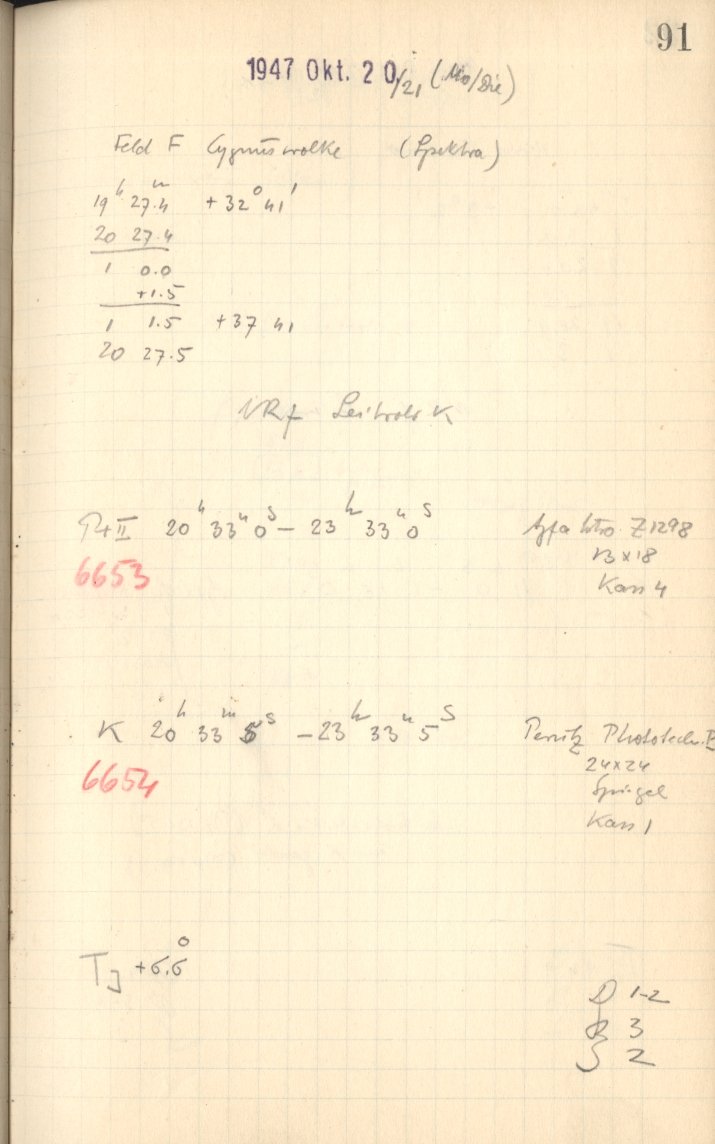 91
1947 Okt. 20/21 (Mo/Die)
Feld F Cygnuswolke (Spektra)
19ʰ 27ᵐ.4 +32° 41'
20 27.4
1 0.0
+1.5
1 1.5 +37 41
20 27.5
Leitrohr K
20ʰ 33ᵐ 0ˢ – 23ʰ 33ᵐ 0ˢ Agfa Astro Z1298
6653 13x18
Kass 4
K 20ʰ 33ᵐ 5ˢ – 23ʰ 33ᵐ 5ˢ Perutz Phototech. B
6654 24x24
Spiegel
Kass 1
T_J +6.6°
D 1-2
R 3
S 2